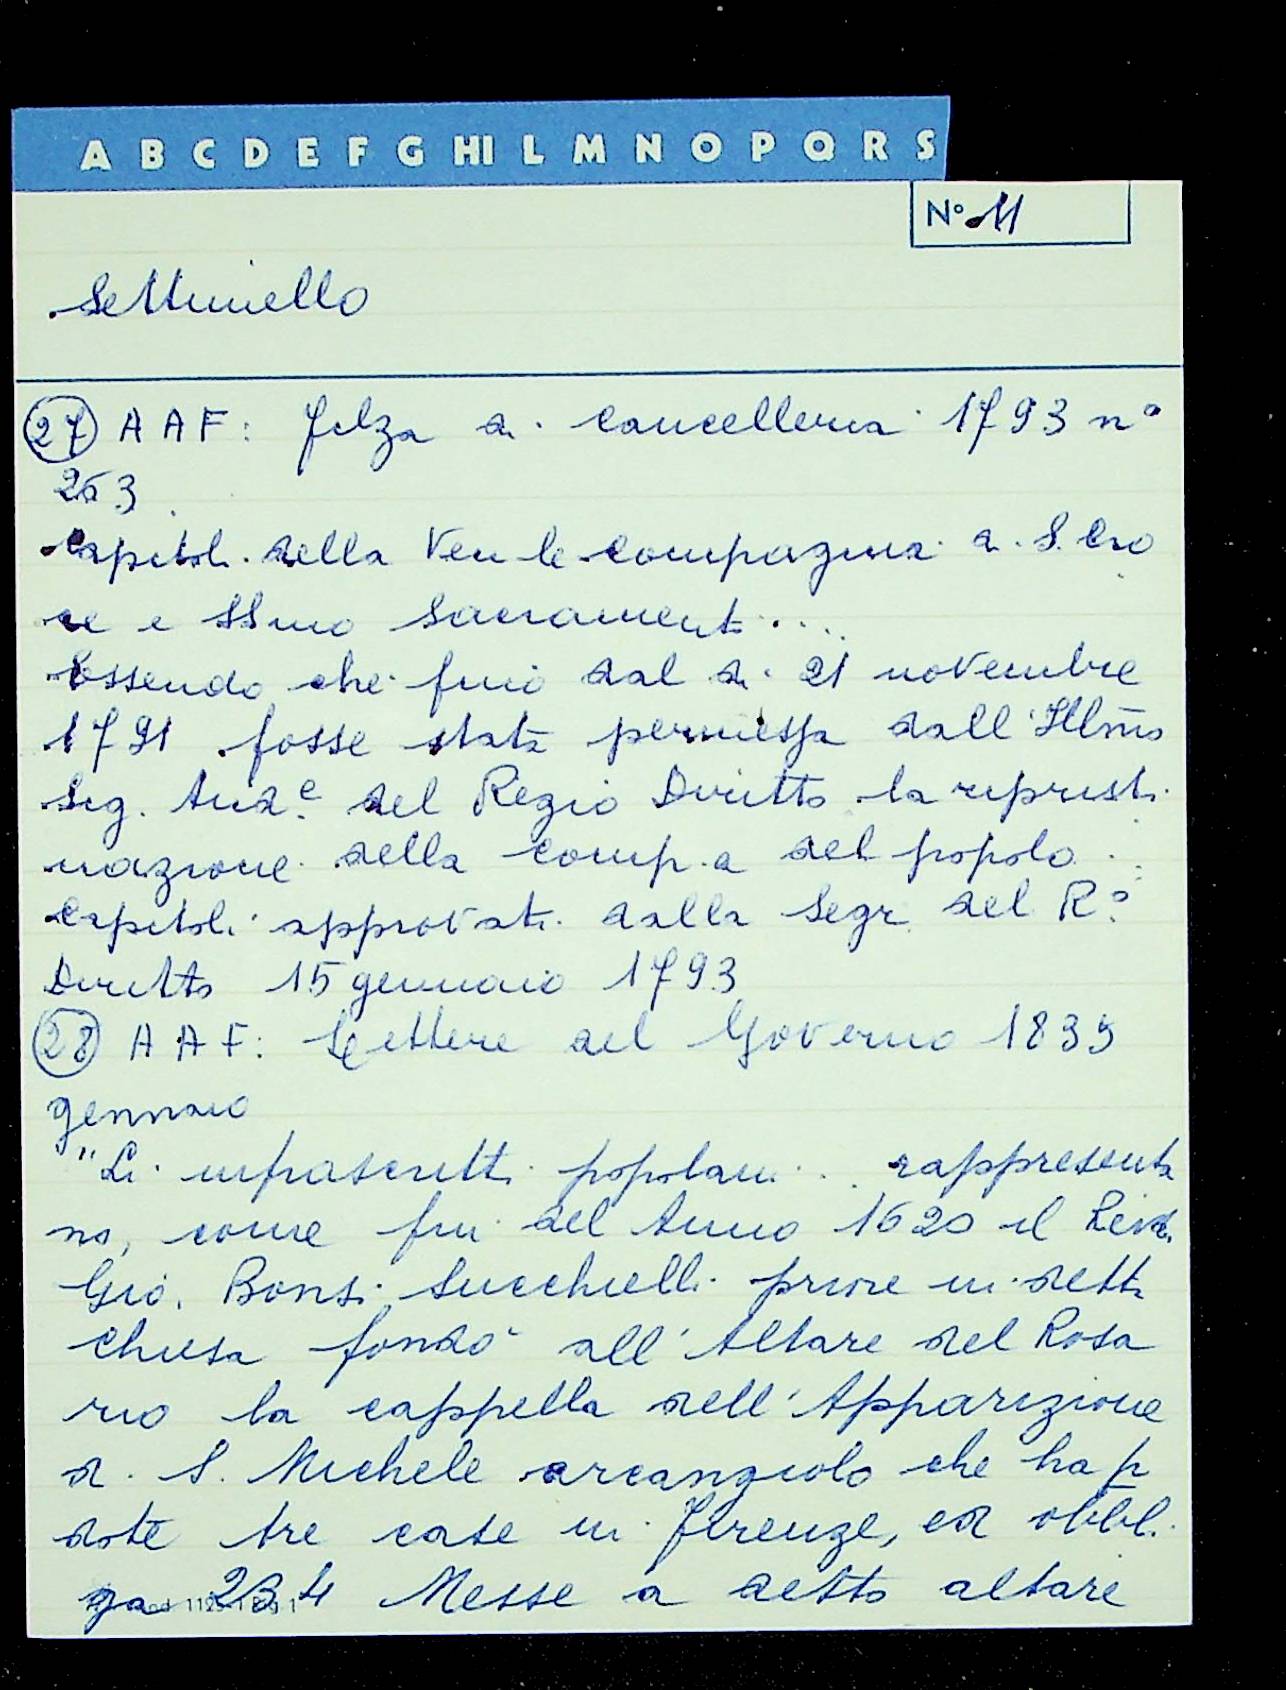 A B C D E F G HI L M N O P Q R S
N° 11
Settimello
27 A A F: filza di cancelleria 1793 n°
253
Capitoli della Ven le compagnia di S. Cro
ce e SSmo Sacramento....
Essendo che fino dal dì 21 novembre
1791 fosse stata permessa dall'Illmo
Sig. Aud.e del Regio Diritto la ripristi
nazione della comp.a del popolo...
Capitoli approvati dalla Segr. del R.o
Diritto 15 gennaio 1793
28 A A F: Lettere del Governo 1835
gennaio
"Li infrascritti popolani... rappresenta
no, come fin del Anno 1620 il Revd.
Gio. Bonsi Succhielli priore in detta
chiesa fondò all'Altare del Rosa
rio la cappella dell'Apparizione
di S. Michele arcangiolo che ha p
dote tre case in Firenze, ed obbli
ga 234 Messe a detto altare